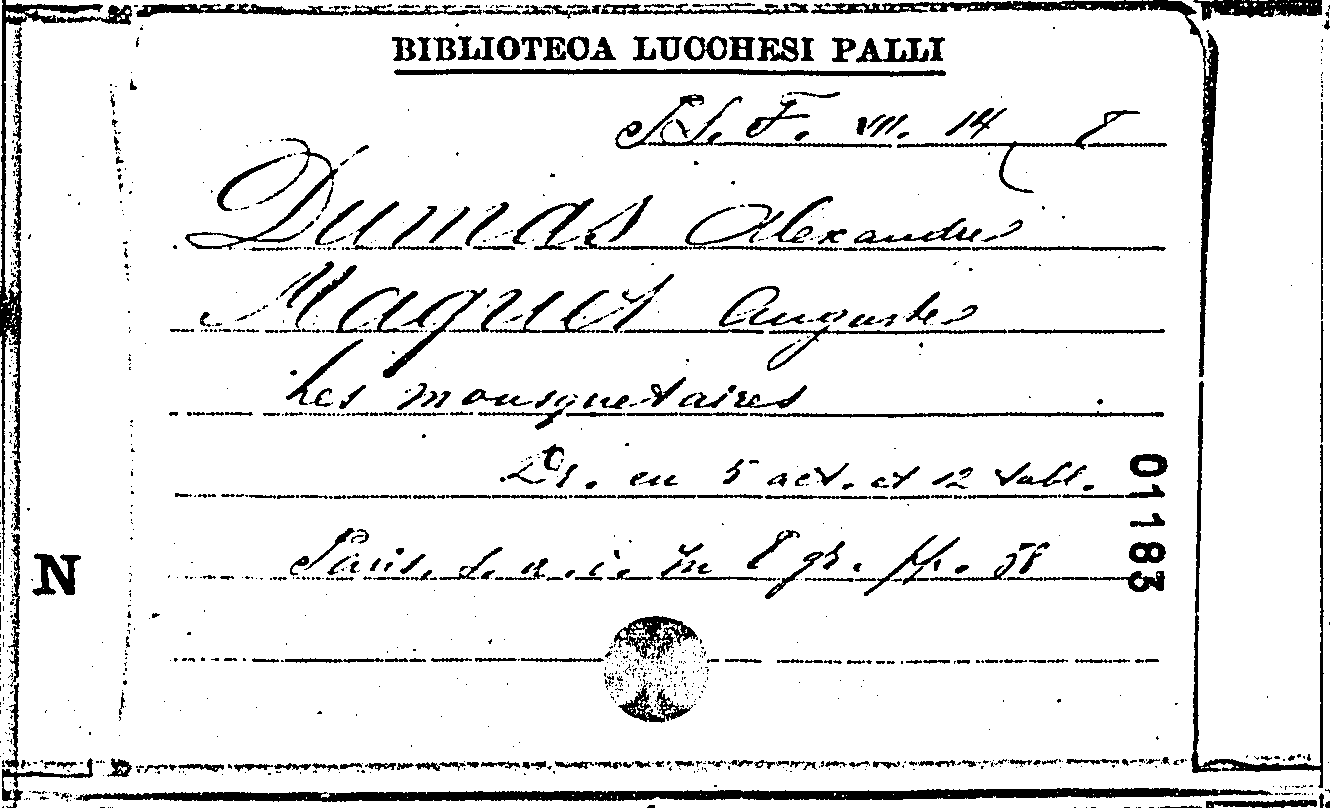 BIBLIOTECA LUCCHESI PALLI
F. VII. 14 8
Dumas Alexandre
Maquet Auguste
Les mousquetaires
Dr. en 5 act. et 12 tabl.
Paris. s. a. i. in 8 gr. pp. 58
01183
N